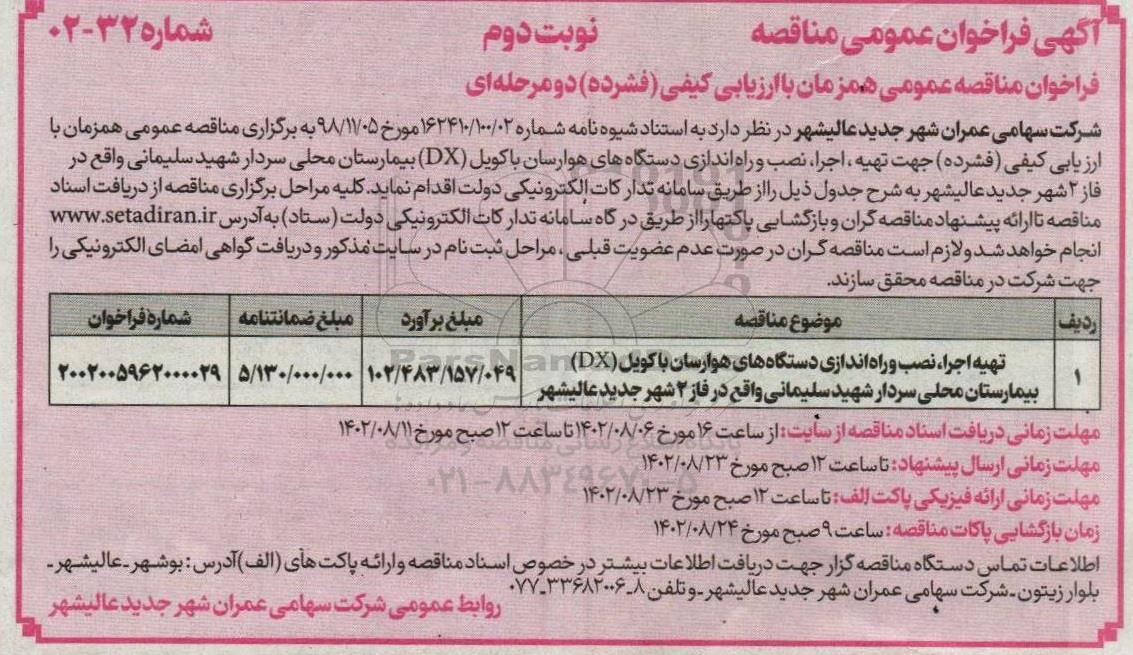 آگهی فراخوان عمومی مناقصه نوبت دوم شماره ۳۲-۰۲
فراخوان مناقصه عمومی همزمان با ارزیابی کیفی (فشرده) دو مرحله‌ای
شرکت سهامی عمران شهر جدید عالیشهر در نظر دارد به استناد شیوه نامه شماره ۱۶۲۴۱۰/۱۰۰/۰۲ مورخ ۹۸/۱۱/۰۵ به برگزاری مناقصه عمومی همزمان با
ارزیابی کیفی (فشرده) جهت تهیه ، اجرا، نصب و راه اندازی دستگاه های هوارسان با کویل (DX) بیمارستان محلی سردار شهید سلیمانی واقع در
فاز ۲ شهر جدید عالیشهر به شرح جدول ذیل را از طریق سامانه تدارکات الکترونیکی دولت اقدام نماید. کلیه مراحل برگزاری مناقصه از دریافت اسناد
مناقصه تا ارائه پیشنهاد مناقصه گران و بازگشایی پاکتها را از طریق درگاه سامانه تدارکات الکترونیکی دولت (ستاد) به آدرس www.setadiran.ir
انجام خواهد شد و لازم است مناقصه گران در صورت عدم عضویت قبلی ، مراحل ثبت نام در سایت مذکور و دریافت گواهی امضای الکترونیکی را
جهت شرکت در مناقصه محقق سازند.
ردیف موضوع مناقصه مبلغ برآورد مبلغ ضمانتنامه شماره فراخوان
۱ تهیه اجرا، نصب و راه اندازی دستگاه‌های هوارسان با کویل (DX) ۱۰۲/۴۸۳/۱۵۷/۰۴۹ ۵/۱۳۰/۰۰۰/۰۰۰ ۲۰۰۲۰۰۵۹۶۲۰۰۰۰۲۹
بیمارستان محلی سردار شهید سلیمانی واقع در فاز ۲ شهر جدید عالیشهر
مهلت زمانی دریافت اسناد مناقصه از سایت: از ساعت ۱۶ مورخ ۱۴۰۲/۰۸/۰۶ تا ساعت ۱۲ صبح مورخ ۱۴۰۲/۰۸/۱۱
مهلت زمانی ارسال پیشنهاد: تا ساعت ۱۲ صبح مورخ ۱۴۰۲/۰۸/۲۳
مهلت زمانی ارائه فیزیکی پاکت الف: تا ساعت ۱۲ صبح مورخ ۱۴۰۲/۰۸/۲۳
زمان بازگشایی پاکات مناقصه: ساعت ۹ صبح مورخ ۱۴۰۲/۰۸/۲۴
اطلاعات تماس دستگاه مناقصه گزار جهت دریافت اطلاعات بیشتر در خصوص اسناد مناقصه و ارائه پاکت های (الف) آدرس : بوشهر ـ عالیشهر ـ
بلوار زیتون ـ شرکت سهامی عمران شهر جدید عالیشهر ـ و تلفن ۸ـ۳۳۶۸۲۰۰۶ـ۰۷۷
روابط عمومی شرکت سهامی عمران شهر جدید عالیشهر
۰۲۱-۸۸۳۴۹۶۷۰-۵